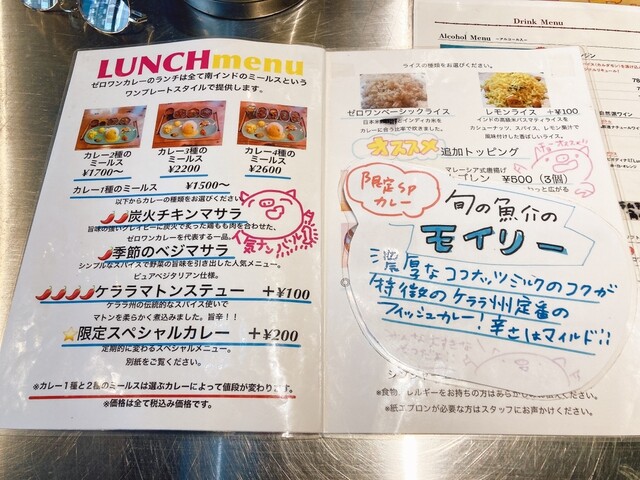 LUNCH menu
ゼロワンカレーのランチは全て南インドのミールスという
ワンプレートスタイルで提供します。
カレー2種の
ミールス
¥1700〜
カレー3種の
ミールス
¥2200
カレー4種の
ミールス
¥2600
カレー1種のミールス ¥1500〜
以下からカレーの種類をお選びください
炭火チキンマサラ
旨味の強いグレイビーに炭火で炙った鶏もも肉を合わせた、
ゼロワンカレーを代表する一品。
人気ナンバル1
季節のベジマサラ
シンプルなスパイスで野菜の旨味を引き出した人気メニュー。
ピュアベジタリアン仕様。
ケララマトンステュー +¥100
ケララ州の伝統的なスパイス使いで
マトンを柔らかく煮込みました。旨辛！！
限定スペシャルカレー +¥200
定期的に変わるスペシャルメニュー。
別紙をご覧ください。
※カレー1種と2種のミールスは選ぶカレーによって値段が変わります。
※価格は全て税込み価格です。
ライスの種類をお選びください。
ゼロワンベーシックライス
カレーに合う比率で炊きました。
レモンライス +¥100
インドの高級米バスマティライスを
カシューナッツ、スパイス、レモン果汁で
風味付けした香ばしいライス。
オススメ
追加トッピング
マレーシア式唐揚げ
¥500（3個）
限定SP
カレー
旬の魚介の
モイリー
濃厚なココナッツミルクのコクが
特徴のケララ州定番の
フィッシュカレー！辛さはマイルド!!
※紙エプロンが必要な方はスタッフにお声かけください。
Drink Menu
Alcohol Menu